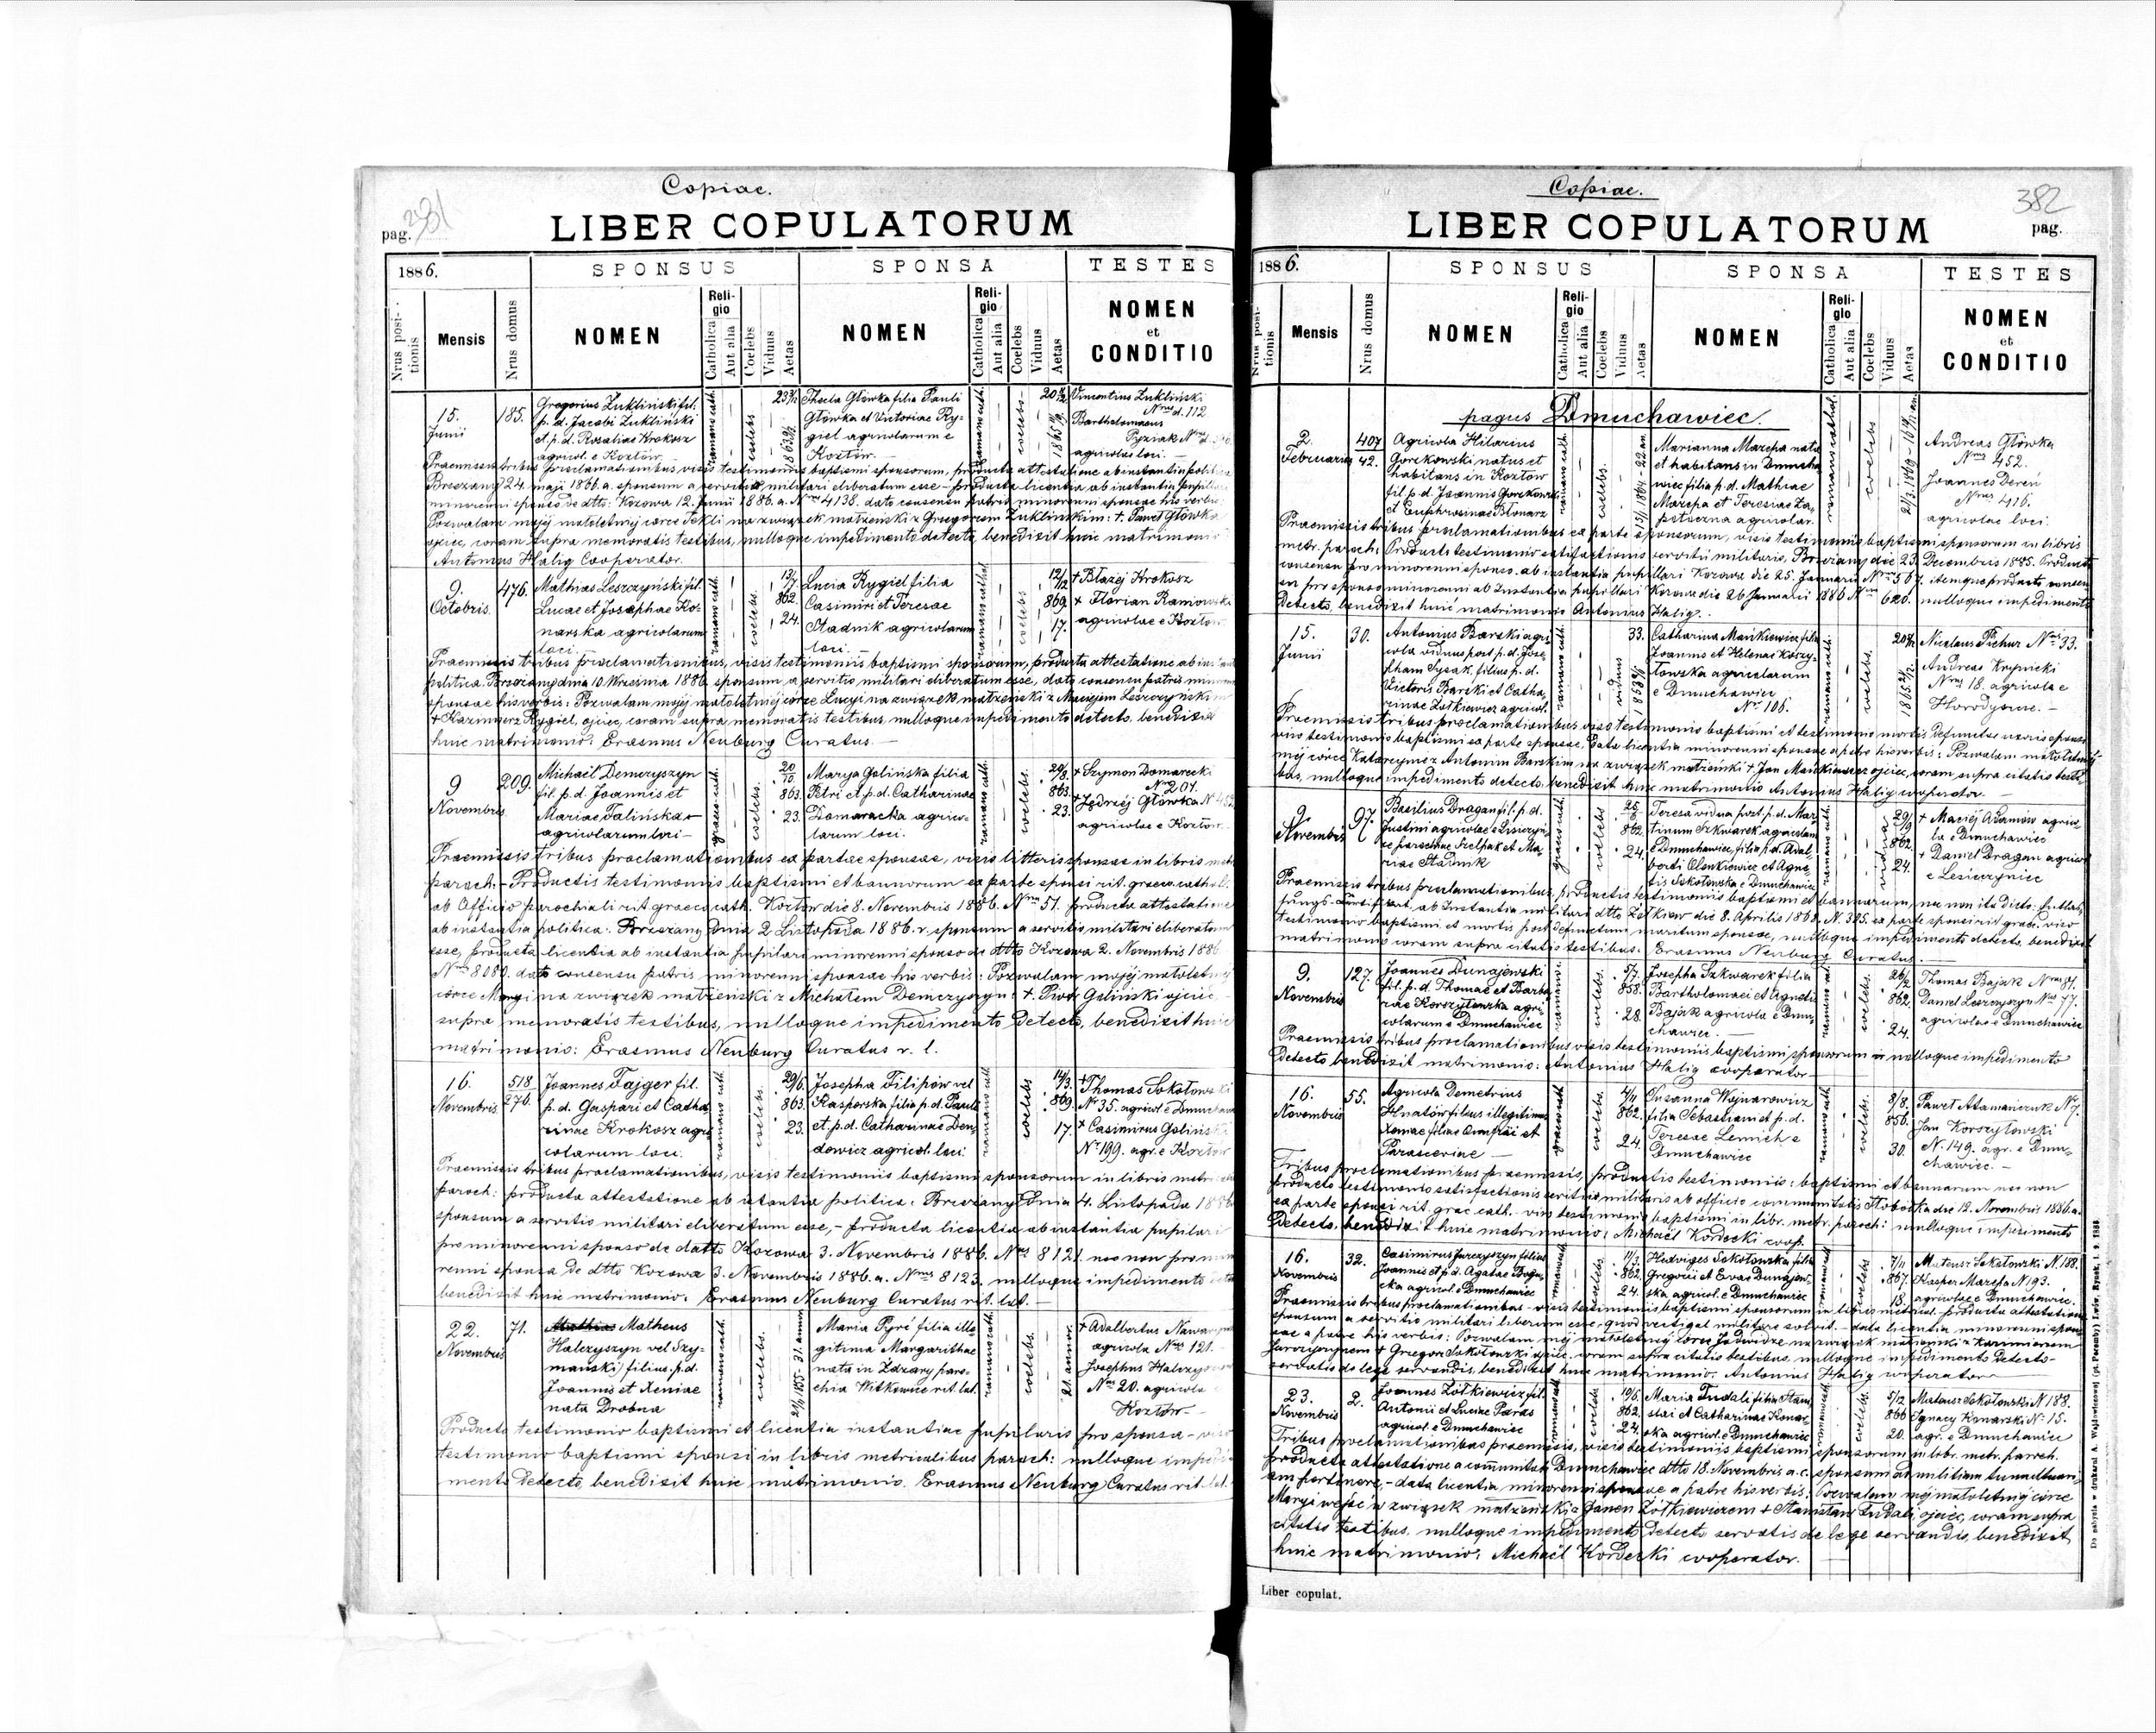 Copiae.
pag. 381
LIBER COPULATORUM
1886.
SPONSUS
SPONSA
TESTES
Nrus positionis
Mensis
Nrus domus
NOMEN
Religio
Catholica
Aut alia
Coelebs
Viduus
Aetas
NOMEN
Religio
Catholica
Aut alia
Coelebs
Viduus
Aetas
NOMEN
et
CONDITIO
15. Junii
185.
Gregorius Zukliński fil.
p. d. Jacobi Zukliński
et p. d. Rosaliae Krokosz
agricol. e Kozłów
romano cath.
coelebs
Thecla Główka filia Pauli
Główka et Victoriae Ry-
giel agricolarum e
Kozłów.
coelebs
Vincentius Zukliński
Nrus d. 112
Bartholomaeus
Pyziak
agricolae loci.
Praemissis tribus proclamationibus visis testimoniis baptismi sponsorum, producta attestatione ab instantia politica
Brzezany 24. maji 1886. a. sponsum a servitio militari eliberatum esse – producta licentia ab instantia pupillari
minorenni sponso de dtto: Kozowa 12. Junii 1886. a. Nrus 4138. dato consensu patris minorenni sponsae his verbis:
Pozwalam mojej małoletniej córce Tekli na związek małżeński z Grzegorzem Zuklińskim: †. Paweł Główka
ojciec, coram supra memoratis testibus, nulloque impedimento detecto, benedixit huic matrimonio
Antonius Halig Cooperator.
9. Octobris
476.
Mathias Leszczyński fil.
Lucae et Josephae Ko-
narska agricolarum
loci.
romano cath.
coelebs.
13/7 862. 24.
Lucia Rygiel filia
Casimiri et Teresae
Stadnik agricolarum
loci.
romano cathol.
coelebs
12/12 869. 17.
+ Błażej Krokosz
+ Florian Raniowski
agricolae e Kozłów.
Praemissis tribus proclamationibus, visis testimoniis baptismi sponsorum, producta attestatione ab instantia
politica. Brzeżany dnia 10 Września 1886. sponsum a servitio militari eliberatum esse, dato consensu patris minorenni
sponsae his verbis: Pozwalam mojej małoletniej córce Łucyi na związek małżeński z Maciejem Leszczyńskim
+ Kazimierz Rygiel, ojciec, coram supra memoratis testibus, nulloque impedimento detecto, benedixit
huic matrimonio: Erasmus Neuburg Curatus. –
9 Novembris
209.
Michaël Demczyszyn
fil. p. d. Joannis et
Mariae Falińska
agricolarum loci –
graeco cath.
coelebs.
20/10 863. 23.
Marya Golińska filia
Petri et p. d. Catharinae
Domaracka agrico-
larum loci.
romano cath.
coelebs.
29/3. 863. 23.
+ Szymon Domarecki
Nrus 201.
+ Jędrzej Główka N 452
agricolae e Kozłów
Praemissis tribus proclamationibus ex partae sponsae, visis litteris sponsae in libris metr.
paroch. – Productis testimoniis baptismi et bannorum ex parte sponsi rit. graeco cathol.
ab Officio parochiali rit graeco cath. Kozłów die 8. Novembris 1886. Nrus 51. producta attestatione
ab instantia politica: Brzezany Dnia 2 Listopada 1886. r. sponsum a servitio militari eliberatum
esse, producta licentia ab instantia pupilari minorenni sponso de dtto Kozowa 2. Novembris 1886
Nrus 8080. dato consensu patris minorenni sponsae his verbis: Pozwalam mojej małoletniej
córce Maryi na związek małżeński z Michałem Demczyszyn: †. Piotr Goliński ojciec
supra memoratis testibus, nulloque impedimento detecto, benedixit huic
matrimonio: Erasmus Neuburg Curatus r. l.
16. Novembris
518/276.
Joannes Fajger fil.
p. d. Gaspari et Catha-
rinae Krokosz agri-
colarum loci.
romano cath.
coelebs.
29/6. 863. 23.
Josepha Filipów vel
Kasperska filia p. d. Pauli
et p. d. Catharinae Den-
dowicz agricol. loci
romano cath.
coelebs
14/3. 869. 17.
+ Thomas Sokołowski
Nr 35. agricol. e Dmuchawiec
+ Casimirus Goliński
Nr 199. agr. e Kozłów
Praemissis tribus proclamationibus, visis testimoniis baptismi sponsorum in libris metr.
paroch: producta attestatione ab istantia politica: Brzezany Dnia 4. Listopada 1886
sponsum a servitio militari eliberatum esse, – producta licentia ab instantia pupilari
pro minorenni sponso de datto Kozowa 3. Novembris 1886. Nrus 8121. nec non pro mino-
renni sponsa de dtto Kozowa 3. Novembris 1886. a. Nrus 8123. nulloque impedimento detecto
benedixit huic matrimonio: Erasmus Neuburg Curatus rit. lat. –
22. Novembris
71.
Matheus
Halczyszyn vel Szy-
mański filius p. d.
Joannis et Xeniae
nata Drobna
romano cath.
coelebs.
Maria Pyrć filia ille-
gitima Margarithae
nata in Zdzary paro-
chia Witkowice rit. lat.
romano cath.
coelebs.
21. annor.
+ Adalbertus Nawar
agricola Nrus 121.
Josephus Halczyszyn
Nrus 20. agricolae e
Kozłów –
Producto testimonio baptismi et licentia instantiae pupilaris pro sponsa – viso
testimonio baptismi sponsi in libris metricalibus paroch: nulloque impedi-
mento detecto, benedixit huic matrimonio. Erasmus Neuburg Curatus rit. lat.
Copiae.
LIBER COPULATORUM
382
pag.
1886.
SPONSUS
SPONSA
TESTES
Nrus positionis
Mensis
Nrus domus
NOMEN
Religio
Catholica
Aut alia
Coelebs
Viduus
Aetas
NOMEN
Religio
Catholica
Aut alia
Coelebs
Viduus
Aetas
NOMEN
et
CONDITIO
pagus Dmuchawiec.
2. Februarii
407/42.
Agricola Hilarius
Gorzkowski natus et
habitans in Kozłów
fil. p. d. Joannis Gorzkowski
et Euphrosinae Błonarz
romano cath.
coelebs.
Marianna Marcpa nata
et habitans in Dmucha-
wiec filia p. d. Mathiae
Marcpa et Teresiae Ła-
agricolar.
romano cathol.
coelebs
Andreas Główka
Nrus 452.
Joannes Dereń
Nrus 416.
agricolae loci.
Praemissis tribus proclamationibus ex parte sponsorum, visis testimoniis baptismi sponsorum in libris
metr. paroch: Producto testimonio satisfactionis servitii militaris, Brzezany die 23. Decembris 1885. Producto
consensu pro minorenni sponso, ab instantia pupillari Kozowa die 25. Januarii Nrus 567. itemque producto consen-
su pro sponso minorenni ab Instantia pupillari Kozowa die 26 Januarii 1886 Nrus 620. nulloque impedimento
detecto, benedixit huic matrimonio Antonius Halig.
15. Junii
30.
Antonius Barski agri-
cola viduus post p. d. Jose-
pham Sysak, filius p. d.
Victoris Barski et Catha-
rinae Żołkiewicz agricol.
viduus
33.
Catharina Mańkiewicz filia
Joannis et Helenae Korzy-
łowska agricolarum
e Dmuchawiec
Nr 106.
romano cath.
coelebs.
Nicolaus Pichur Nrus 33.
Andreas Krynicki
Nrus 18. agricolae
Horodyszcze. –
Praemissis tribus proclamationibus, viso testimonio baptismi et testimonio mortis defunctae uxoris sponsi
viso testimonio baptismi ex parte sponsae, data licentia minorenni sponsae a patre his verbis: Pozwalam małoletniej
mej córce Katarzynie z Antonim Barskim na związek małżeński + Jan Mańkiewicz ojciec, coram supra citatis testi-
bus, nulloque impedimento detecto, benedixit huic matrimonio Antonius Halig cooperator. –
9. Novembris
97.
Basilius Dragan fil. p. d.
Justini agricolae e Lisiczyn-
ce parochiae Szelpak et Ma-
riae Stadnik
graeco cath.
coelebs
25/5 862. 24.
Teresa vidua post p. d. Mar-
tinum Szkwarek agricolam
e Dmuchawiec, filia p. d. Adal-
berti Olenkiewicz et Agne-
tis Sokołowska e Dmuchawiec
vidua
29/9 862. 24.
+ Maciej Adamów agrico-
la e Dmuchawiec
+ Daniel Dragan agricol.
e Lesieczyniec
Praemissis tribus proclamationibus, productis testimoniis baptismi et bannorum, nec non ita dicto: Entlas-
sungs-Certificat, ab Instantia militari dtto Żołkiew die 8. Aprilis 1886. N. 385. ex parte sponsi rit. graec. viso
testimonio baptismi et mortis post defunctum maritum sponsae, nulloque impedimento detecto, benedixit
matrimonio coram supra citatis testibus: Erasmus Neuburg Curatus. –
9. Novembris
127.
Joannes Dunajewski
fil. p. d. Thomae et Barba-
rae Korszyłowska agri-
colarum e Dmuchawiec
coelebs.
5/7. 858. 28.
Josepha Szkwarek filia
Bartholomaei et Agnetis
Bajak agricolae e Dmu-
chawiec. –
coelebs.
26/2 862. 24.
Thomas Bajak Nrus 81.
Daniel Leszczyszyn Nrus 77.
agricolae e Dmuchawiec
Praemissis tribus proclamationibus visis testimoniis baptismi sponsorum nulloque impedimento
detecto benedixit matrimonio: Antonius Halig cooperator
16. Novembris
55.
Agricola Demetrius
Hnatów filius illegitimus
Xeniae filiae Onufrii et
Parasceviae –
graeco cath.
coelebs.
4/11 862. 24.
Susanna Wojnarowicz
filia Sebastiani et p. d.
Teresae Lemich e
Dmuchawiec
coelebs.
8/8. 856. 30.
Paweł Atamańczuk Nr 7.
Jan Korszyłowski
N. 149. agr. e Dmu-
chawiec. –
Tribus proclamationibus praemissis, productis testimoniis: baptismi et bannorum nec non
producto testimonio satisfactionis servitii militaris ab officio communitatis Słobodka die 12. Novembris 1886. a.
ex parte sponsi rit. graec. cath. – viso testimonio baptismi in libr. metr. paroch: nulloque impedimento
detecto, benedixit huic matrimonio: Michaël Kordecki coop.
16. Novembris
32.
Casimirus Jurczyszyn filius
Joannis et p. d. Agathae Bogu-
cka agricol. e Dmuchawiec
coelebs
11/3. 862. 24.
Hedviges Sokołowska filia
Gregorii et Evae Dunajew-
ska agricol. e Dmuchawiec
coelebs
7/11 867. 18.
Mateusz Sokołowski N. 188.
Kasper Marcpa N 193.
agricolae e Dmuchawiec.
Praemissis tribus proclamationibus – visis testimoniis baptismi sponsorum in libris metrical. producta attestatione
sponsum a servitio militari liberum esse, quod vectigal militare solvit. – data licentia minorenni spon-
sae a patre his verbis: Pozwalam mej małoletniej córce Jadwidze na związek małżeński z Kazimierzem
Jurczyszynem + Gregorz Sokołowski ojciec, coram supra citatis testibus, nulloque impedimento detecto –
servatis de lege servandis, benedixit huic matrimonio. Antonius Halig cooperator
23. Novembris
2.
Joannes Żółkiewicz fil.
Antonii et Luciae Paras
agricol. e Dmuchawiec
coelebs
19/6. 862. 24.
Maria Fudali filia Stani-
slai et Catharinae Konar-
ska agricol. e Dmuchawiec
coelebs.
5/12 866 20.
Mateusz Sokołowski N 188.
Ignacy Konarski N. 15.
agr. e Dmuchawiec
Tribus proclamationibus praemissis, visis testimoniis baptismi sponsorum in libr. metr. paroch.
producta attestatione a communitate Dmuchawiec dtto 18. Novembris a. c. sponsum ad militiam
pertinere, – data licentia, minorenni sponsae a patre his verbis: Pozwalam mej małoletniej córce
Maryi wejść w związek małżeński z Janem Żółkiewiczem + Stanisław Fudali, ojciec, coram supra
citatis testibus. nulloque impedimento detecto servatis de lege servandis, benedixit
huic matrimonio: Michaël Kordecki cooperator.
Liber copulat.
Do nabycia w drukarni A. Wajdowiczowej (pl. Poremby) Lwów, Rynek, l. 9. 1888.